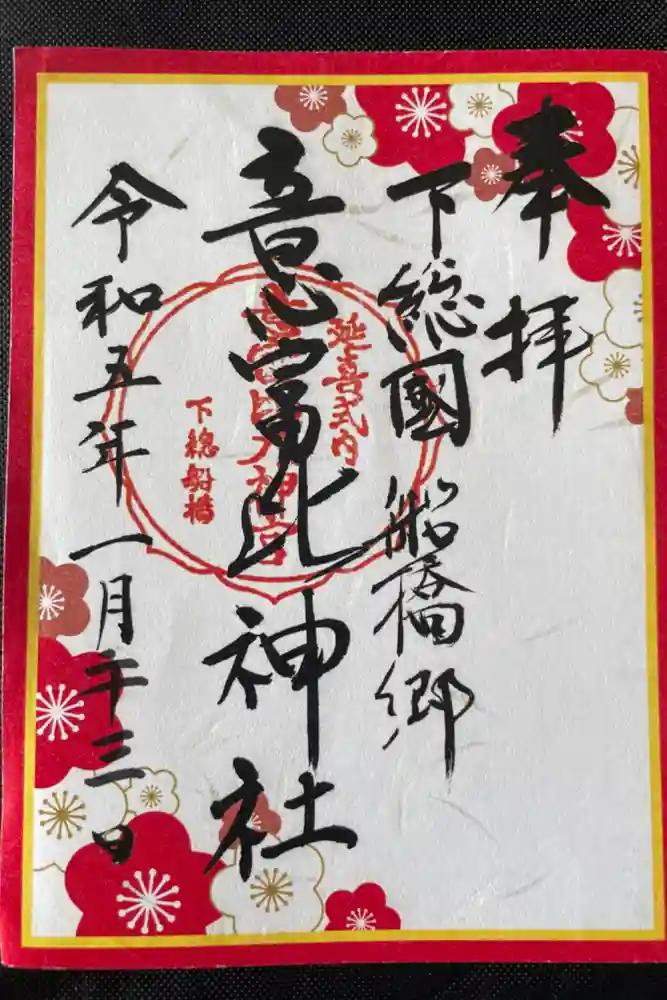 奉拝
下総國船橋郷
意富比神社
令和五年一月二十三日
延喜式内
意富比大神宮
下総船橋